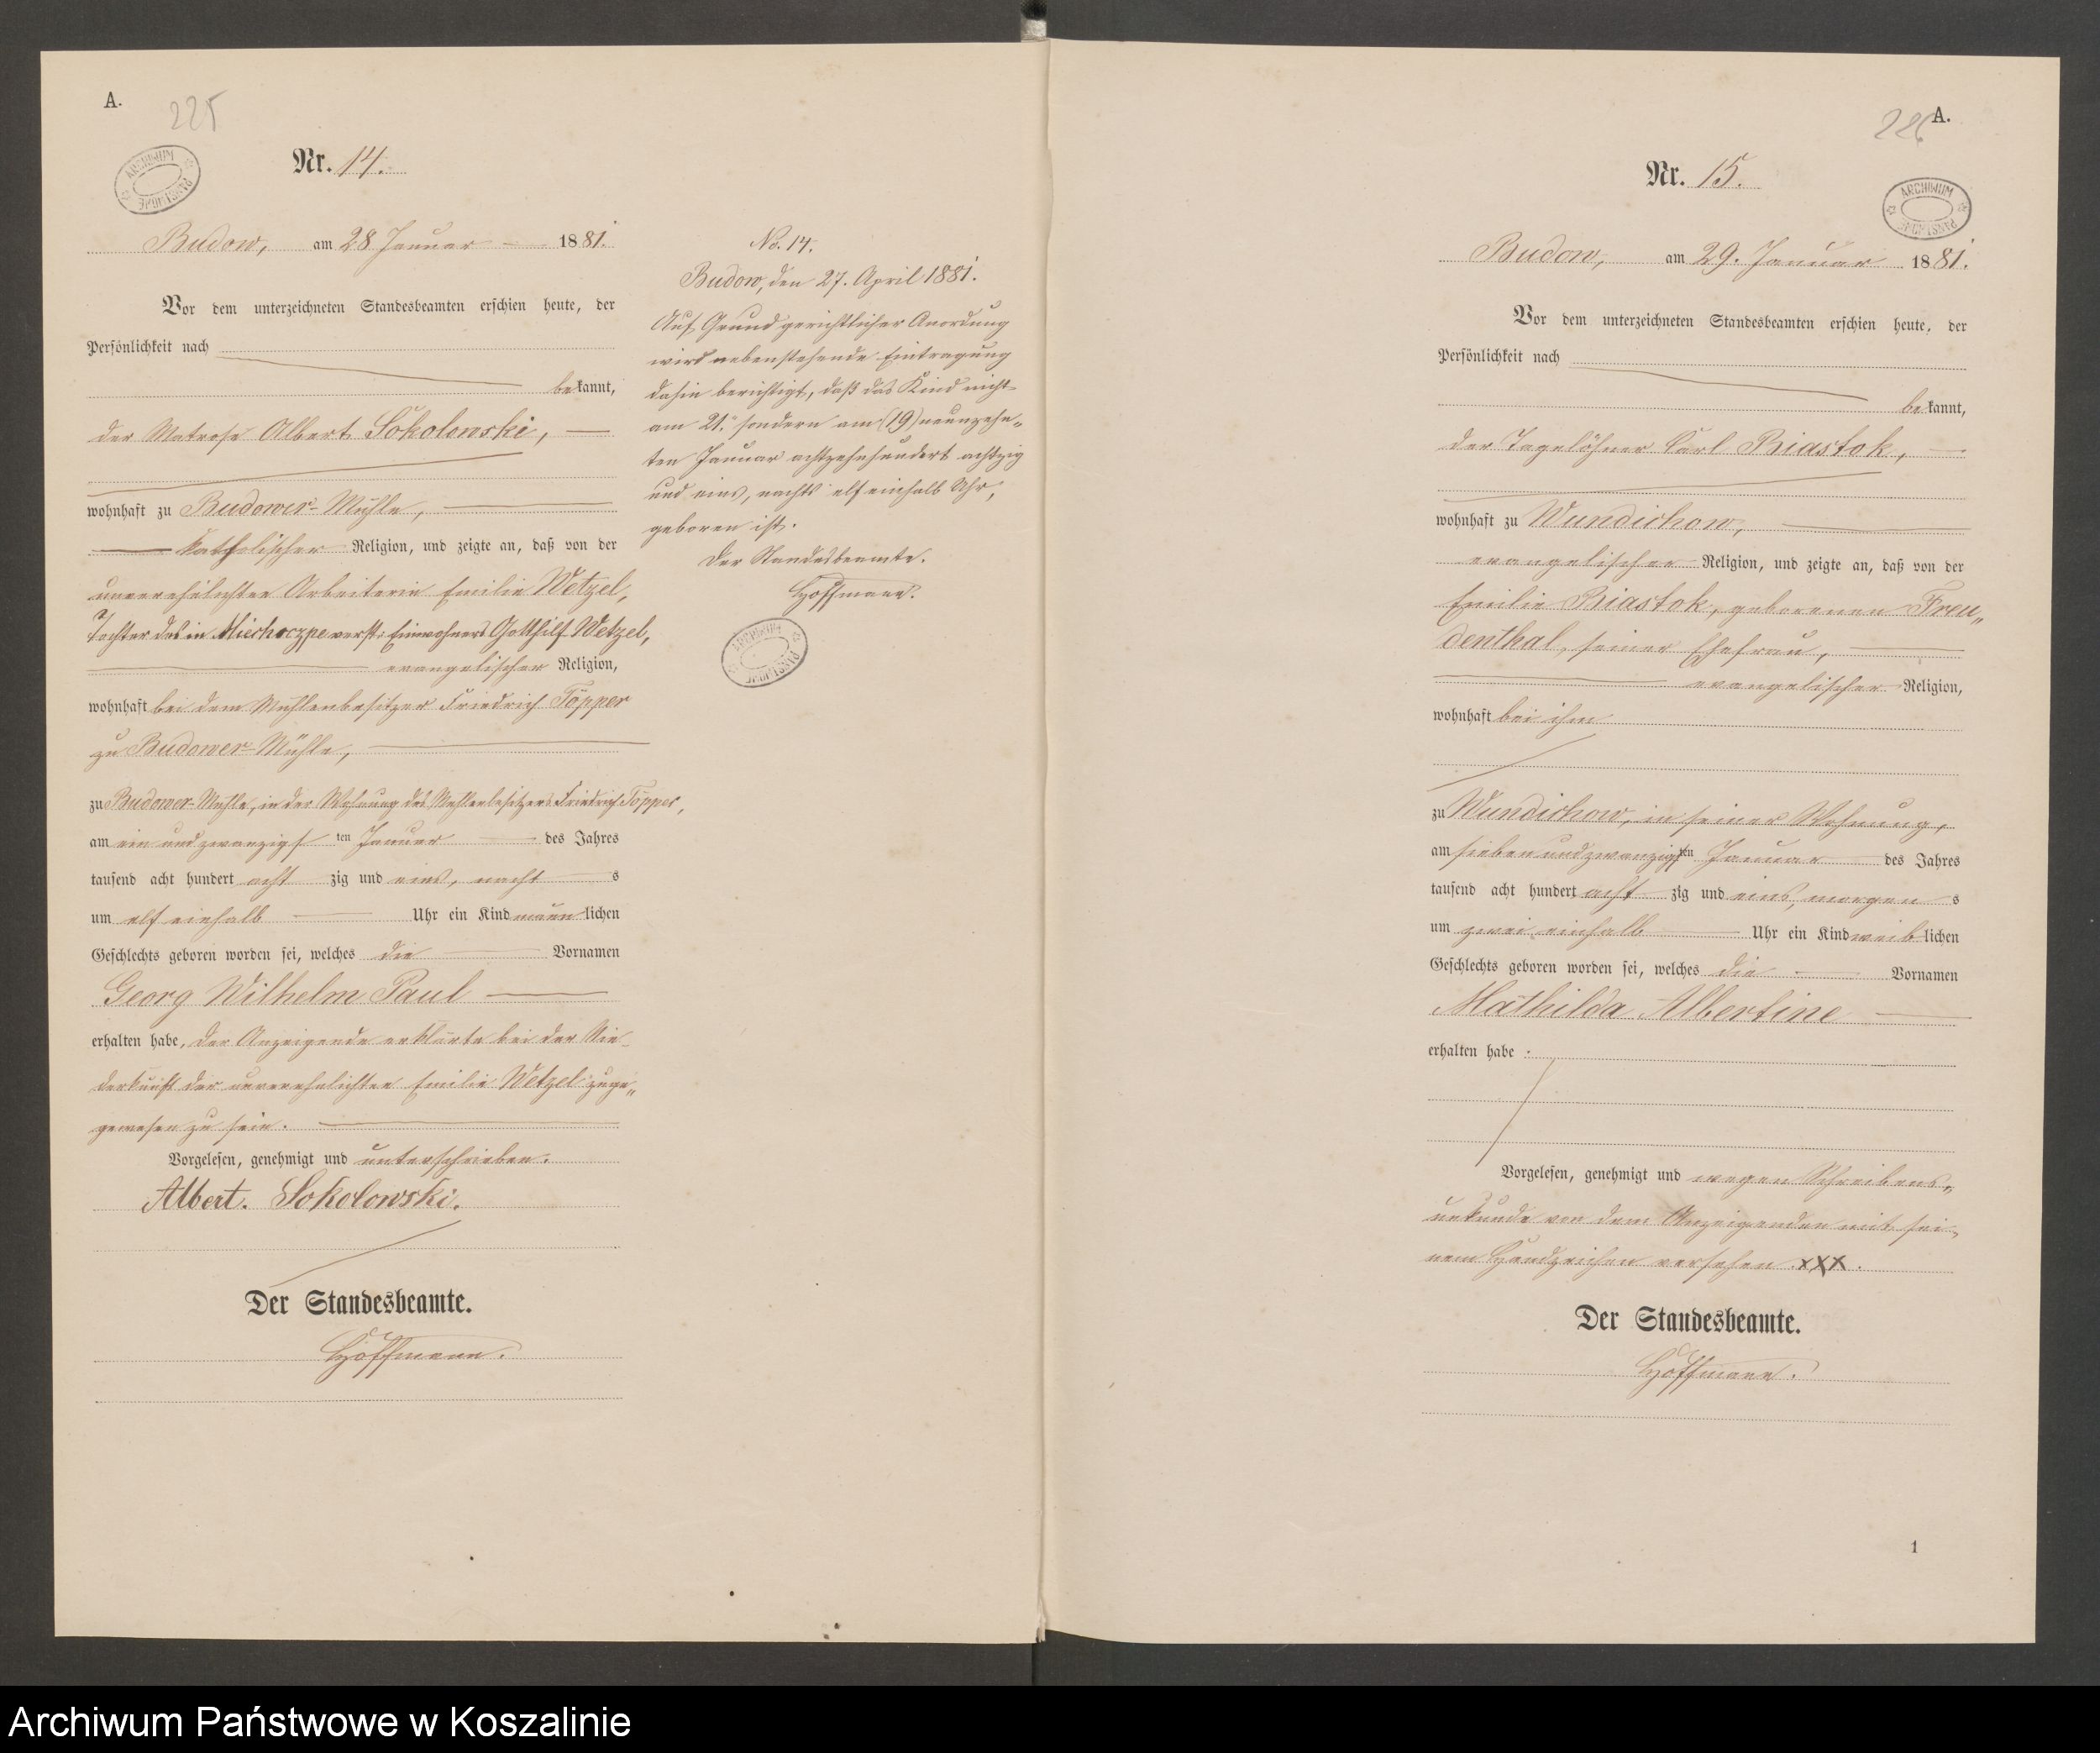 A.
225
Nr. 14.
ARCHIWUM PAŃSTWOWE
Budow, am 28 Januar 1881.
Vor dem unterzeichneten Standesbeamten erschien heute, der
Persönlichkeit nach
bekannt,
der Matrose Albert Sokolowski,
wohnhaft zu Budower-Mühle,
katholischer Religion, und zeigte an, daß von der
unverehelichten Arbeiterin Emilie Wetzel,
Tochter des in verst. Einwohners Gotthilf Wetzel,
evangelischer Religion,
wohnhaft bei dem Mühlenbesitzer Friedrich Töpper
zu Budower-Mühle,
zu Budower-Mühle, in der Wohnung des Mühlenbesitzers Friedrich Töpper,
am ein und zwanzigsten Januar des Jahres
tausend acht hundert achtzig und eins, nachts
um elf einhalb Uhr ein Kind männlichen
Geschlechts geboren worden sei, welches die Vornamen
Georg Wilhelm Paul
erhalten habe, der Anzeigende erklärte bei der Nie-
derkunft der unverehelichten Emilie Wetzel zuge„
gewesen zu sein.
Vorgelesen, genehmigt und unterschrieben.
Albert. Sokolowski.
Der Standesbeamte.
Hoffmann.
No. 14.
Budow, den 27. April 1881.
Auf Grund gerichtlicher Anordung
wird nebenstehende Eintragung
dahin berichtigt, daß das Kind nicht
am 21. sondern am (19) neunzehn„
ten Januar achtzehnhundert achtzig
und eins, nachts elf einhalb Uhr,
geboren ist.
Der Standesbeamte.
Hoffmann.
ARCHIWUM PAŃSTWOWE
A.
226
Nr. 15.
ARCHIWUM PAŃSTWOWE
Budow, am 29. Januar 1881.
Vor dem unterzeichneten Standesbeamten erschien heute, der
Persönlichkeit nach
bekannt,
der Tagelöhner Carl Biastok,
wohnhaft zu Wundichow,
evangelischer Religion, und zeigte an, daß von der
Emilie Biastok, geborenen Freu„
denthal, seiner Ehefrau,
evangelischer Religion,
wohnhaft bei ihm
zu Wundichow, in seiner Wohnung,
am sieben und zwanzigsten Januar des Jahres
tausend acht hundert achtzig und eins, morgens
um zwei einhalb Uhr ein Kind weiblichen
Geschlechts geboren worden sei, welches die Vornamen
Mathilda Albertine
erhalten habe.
Vorgelesen, genehmigt und wegen Schreibens„
unkunde von dem Anzeigenden mit sei„
nem Handzeichen versehen XXX.
Der Standesbeamte.
Hoffmann.
1
Archiwum Państwowe w Koszalinie